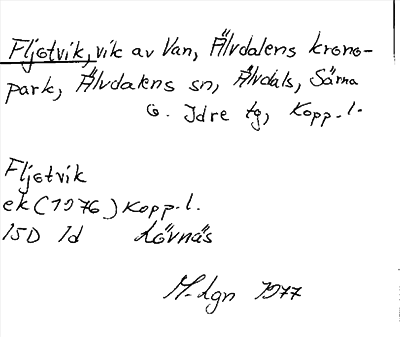 Fljotvik, vik av Van, Älvdalens krono-
park, Älvdalens sn, Älvdals, Särna
o. Idre tg, Kopp. l.
Fljotvik
ek (1976) Kopp. l.
15D 1d Lövnäs
M-Lgn 1977